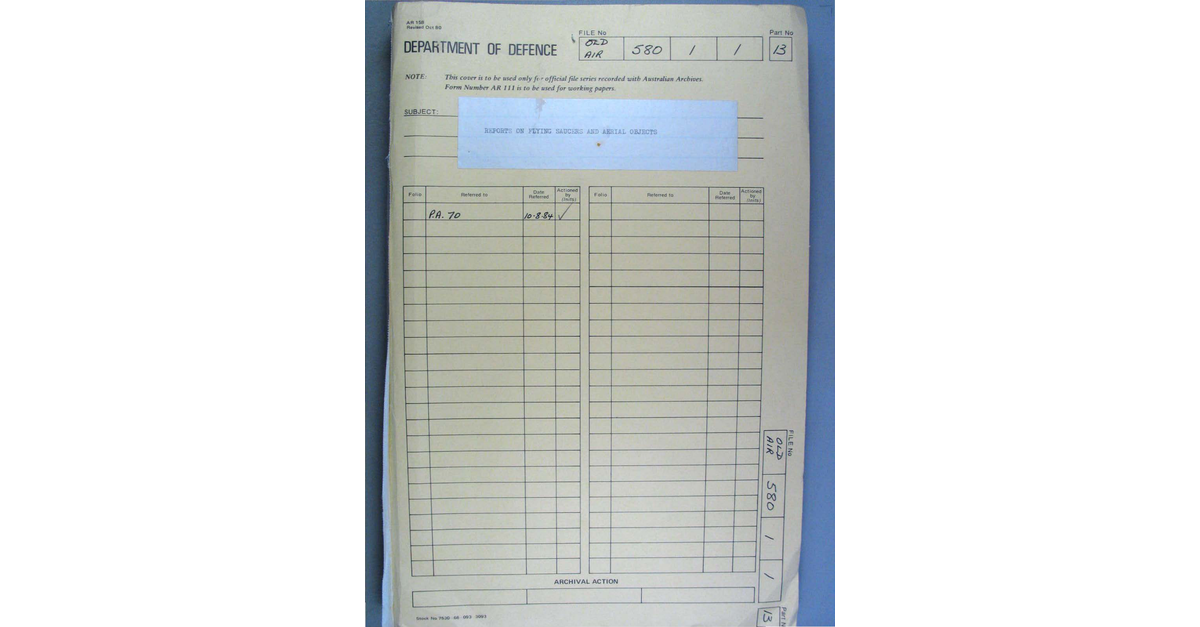 AR 158
Revised Oct 80
DEPARTMENT OF DEFENCE
FILE No
Part No
OLD AIR 580 1 1 13
NOTE This cover is to be used only for official file series recorded with Australian Archives.
Form Number AR 111 is to be used for working papers.
SUBJECT:
REPORTS ON FLYING SAUCERS AND AERIAL OBJECTS
Folio Referred to Date Referred Actioned by (Initls) Folio Referred to Date Referred Actioned by (Initls)
P.A. 70 10·8·84 ✓
FILE No
OLD AIR 580 1 1
Part No
13
ARCHIVAL ACTION